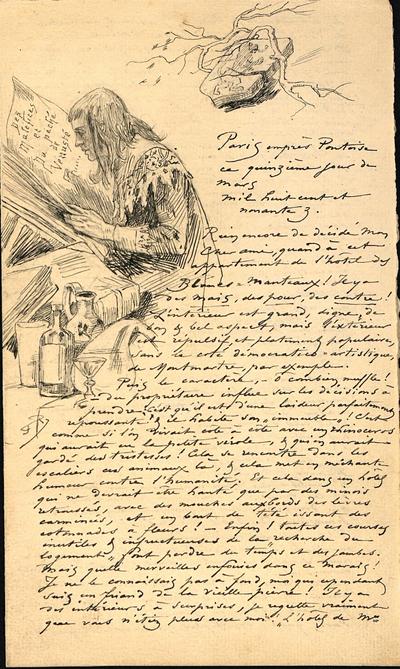 Des
Maléfices
et
Du pacte
de
Paris emprès Pontoise
ce quinzième jour de
mars
mil huit cent et
nonante 3.
Rien encore de décidé mon
cher ami, quand à cet
appartement de l'hôtel des
Blancs-Manteaux! Il y a
des mais, des pour, des contre!
L'intérieur est grand, digne, de
bel aspect, mais l'extérieur
est répulsif et platement populaire,
sans le coté démocratico-artistique,
de Montmartre par exemple.
Puis le caractère, - ô combien muffle!
du propriétaire influe sur les décisions à
prendre! C'est qu'il est d'une laideur parfaitement
repoussante & il habite son immeuble! C'est
comme si l'on vivait cote à cote avec un rhinocéros
qui aurait eu la petite vérole, & qui en aurait
gardé des tristesses! Cela se rencontre dans les
escaliers ces animaux la, & cela met en méchante
humeur contre l'humanité. Et cela dans un hotel
qui ne devrait être hanté que par des minois
retroussés, avec des mouches aux bords des lèvres
carminées, et un bout de tété issant des
cotonnades à fleurs! - Enfin! toutes ces courses
inutiles & infructueuses de la recherche du
logement, font perdre du temps et des jambes.
Mais quelle merveilles enfouies dans ce marais!
Je ne le connaissais pas à fond, moi qui cependant
suis un friand de la vieille pierre! Il y a
des intérieurs à surprises, je regrette vraiment
que vous n'étiez plus avec moi. L'hôtel de Mme